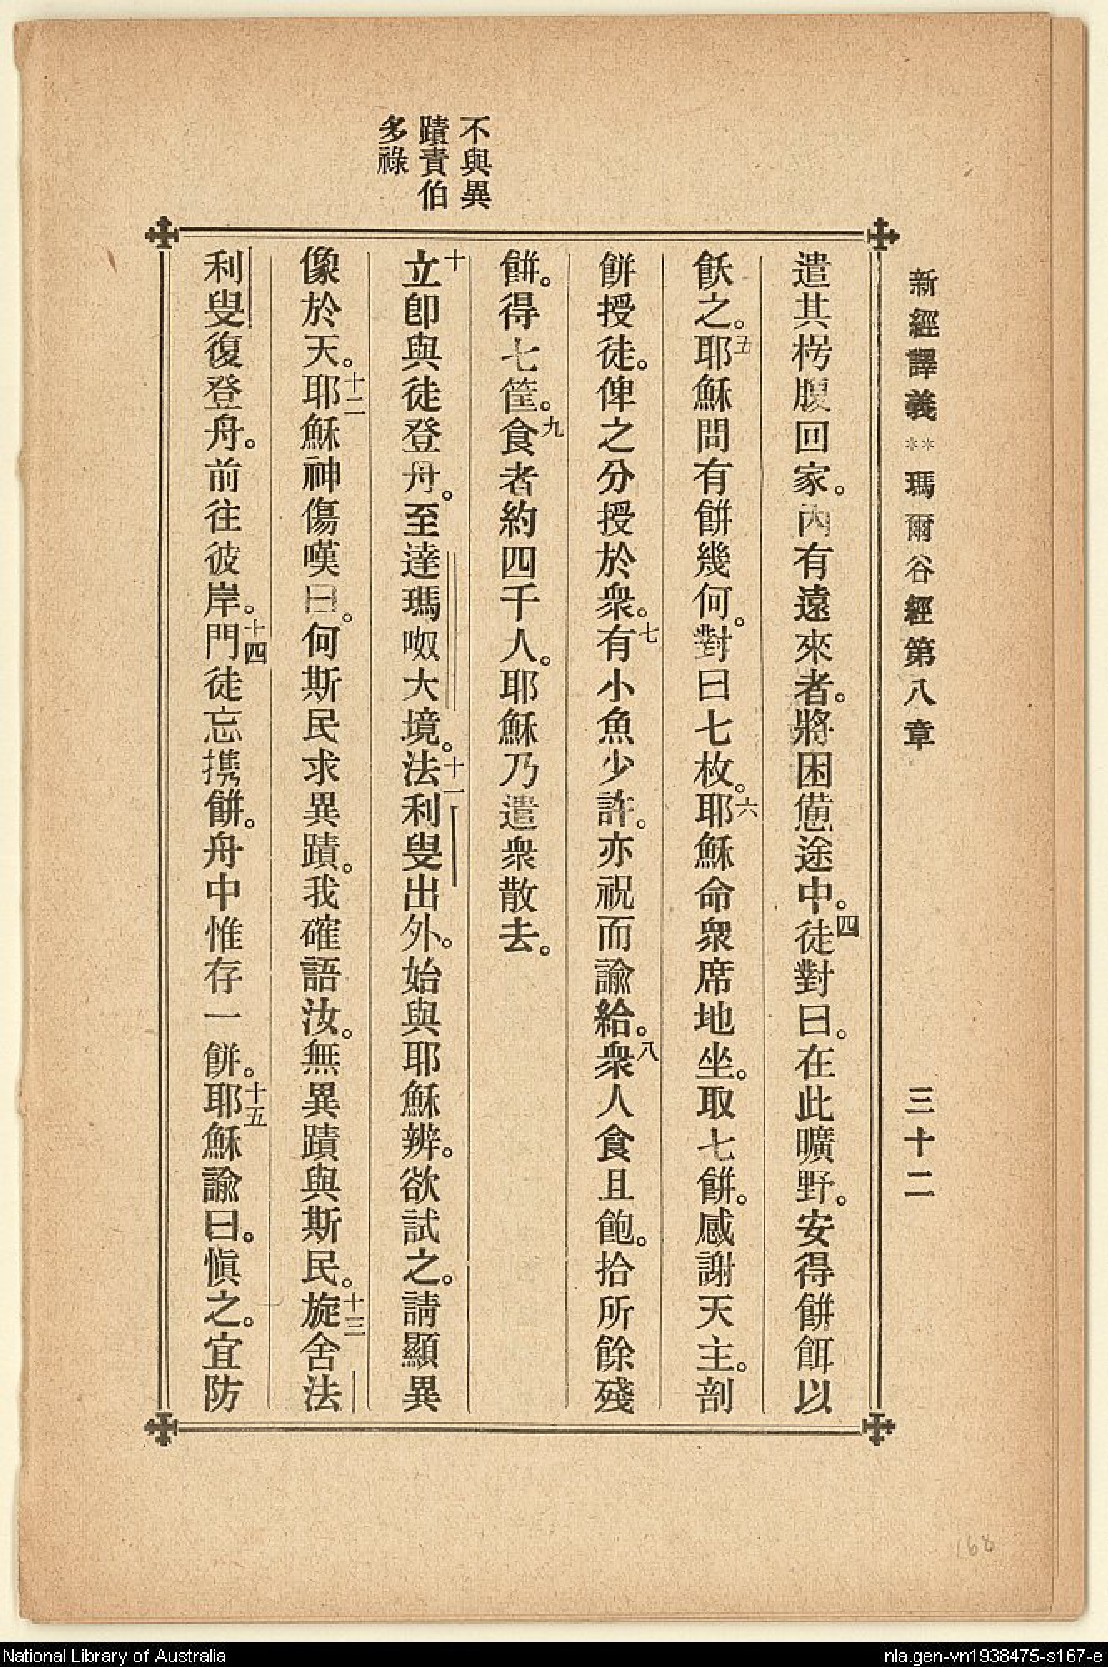 新經譯義**瑪爾谷經第八章 三十二
遣其枵腹回家。內有遠來者。將困憊途中。四徒對曰。在此曠野。安得餅餌以
飫之。五耶穌問有餅幾何。對曰七枚。六耶穌命衆席地坐。取七餅。感謝天主。剖
餅授徒。俾之分授於衆。七有小魚少許。亦祝而諭給。八衆人食且飽。拾所餘殘
餅。得七筐。九食者約四千人。耶穌乃遣衆散去。
不與異
蹟責伯
多祿
十立卽與徒登舟。至達瑪呶大境。十一法利叟出外。始與耶穌辨。欲試之。請顯異
像於天。十二耶穌神傷嘆曰。何斯民求異蹟。我確語汝。無異蹟與斯民。十三旋舍法
利叟復登舟。前往彼岸。十四門徒忘携餅。舟中惟存一餅。十五耶穌諭曰。愼之。宜防
168
National Library of Australia
nla.gen-vn1938475-s167-e